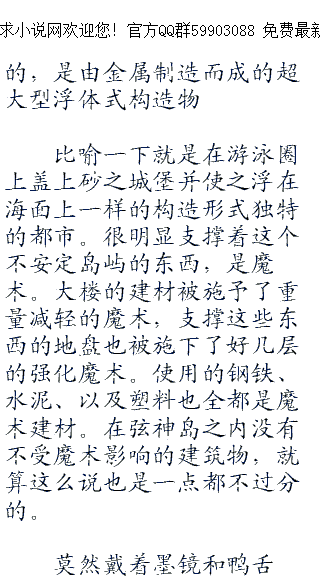 求小说网欢迎您！官方QQ群59903088 免费最新
的，是由金属制造而成的超
大型浮体式构造物
比喻一下就是在游泳圈
上盖上砂之城堡并使之浮在
海面上一样的构造形式独特
的都市。很明显支撑着这个
不安定岛屿的东西，是魔
术。大楼的建材被施予了重
量减轻的魔术，支撑这些东
西的地盘也被施下了好几层
的强化魔术。使用的钢铁、
水泥、以及塑料也全都是魔
术建材。在弦神岛之内没有
不受魔术影响的建筑物，就
算这么说也是一点都不过分
的。
莫然戴着墨镜和鸭舌